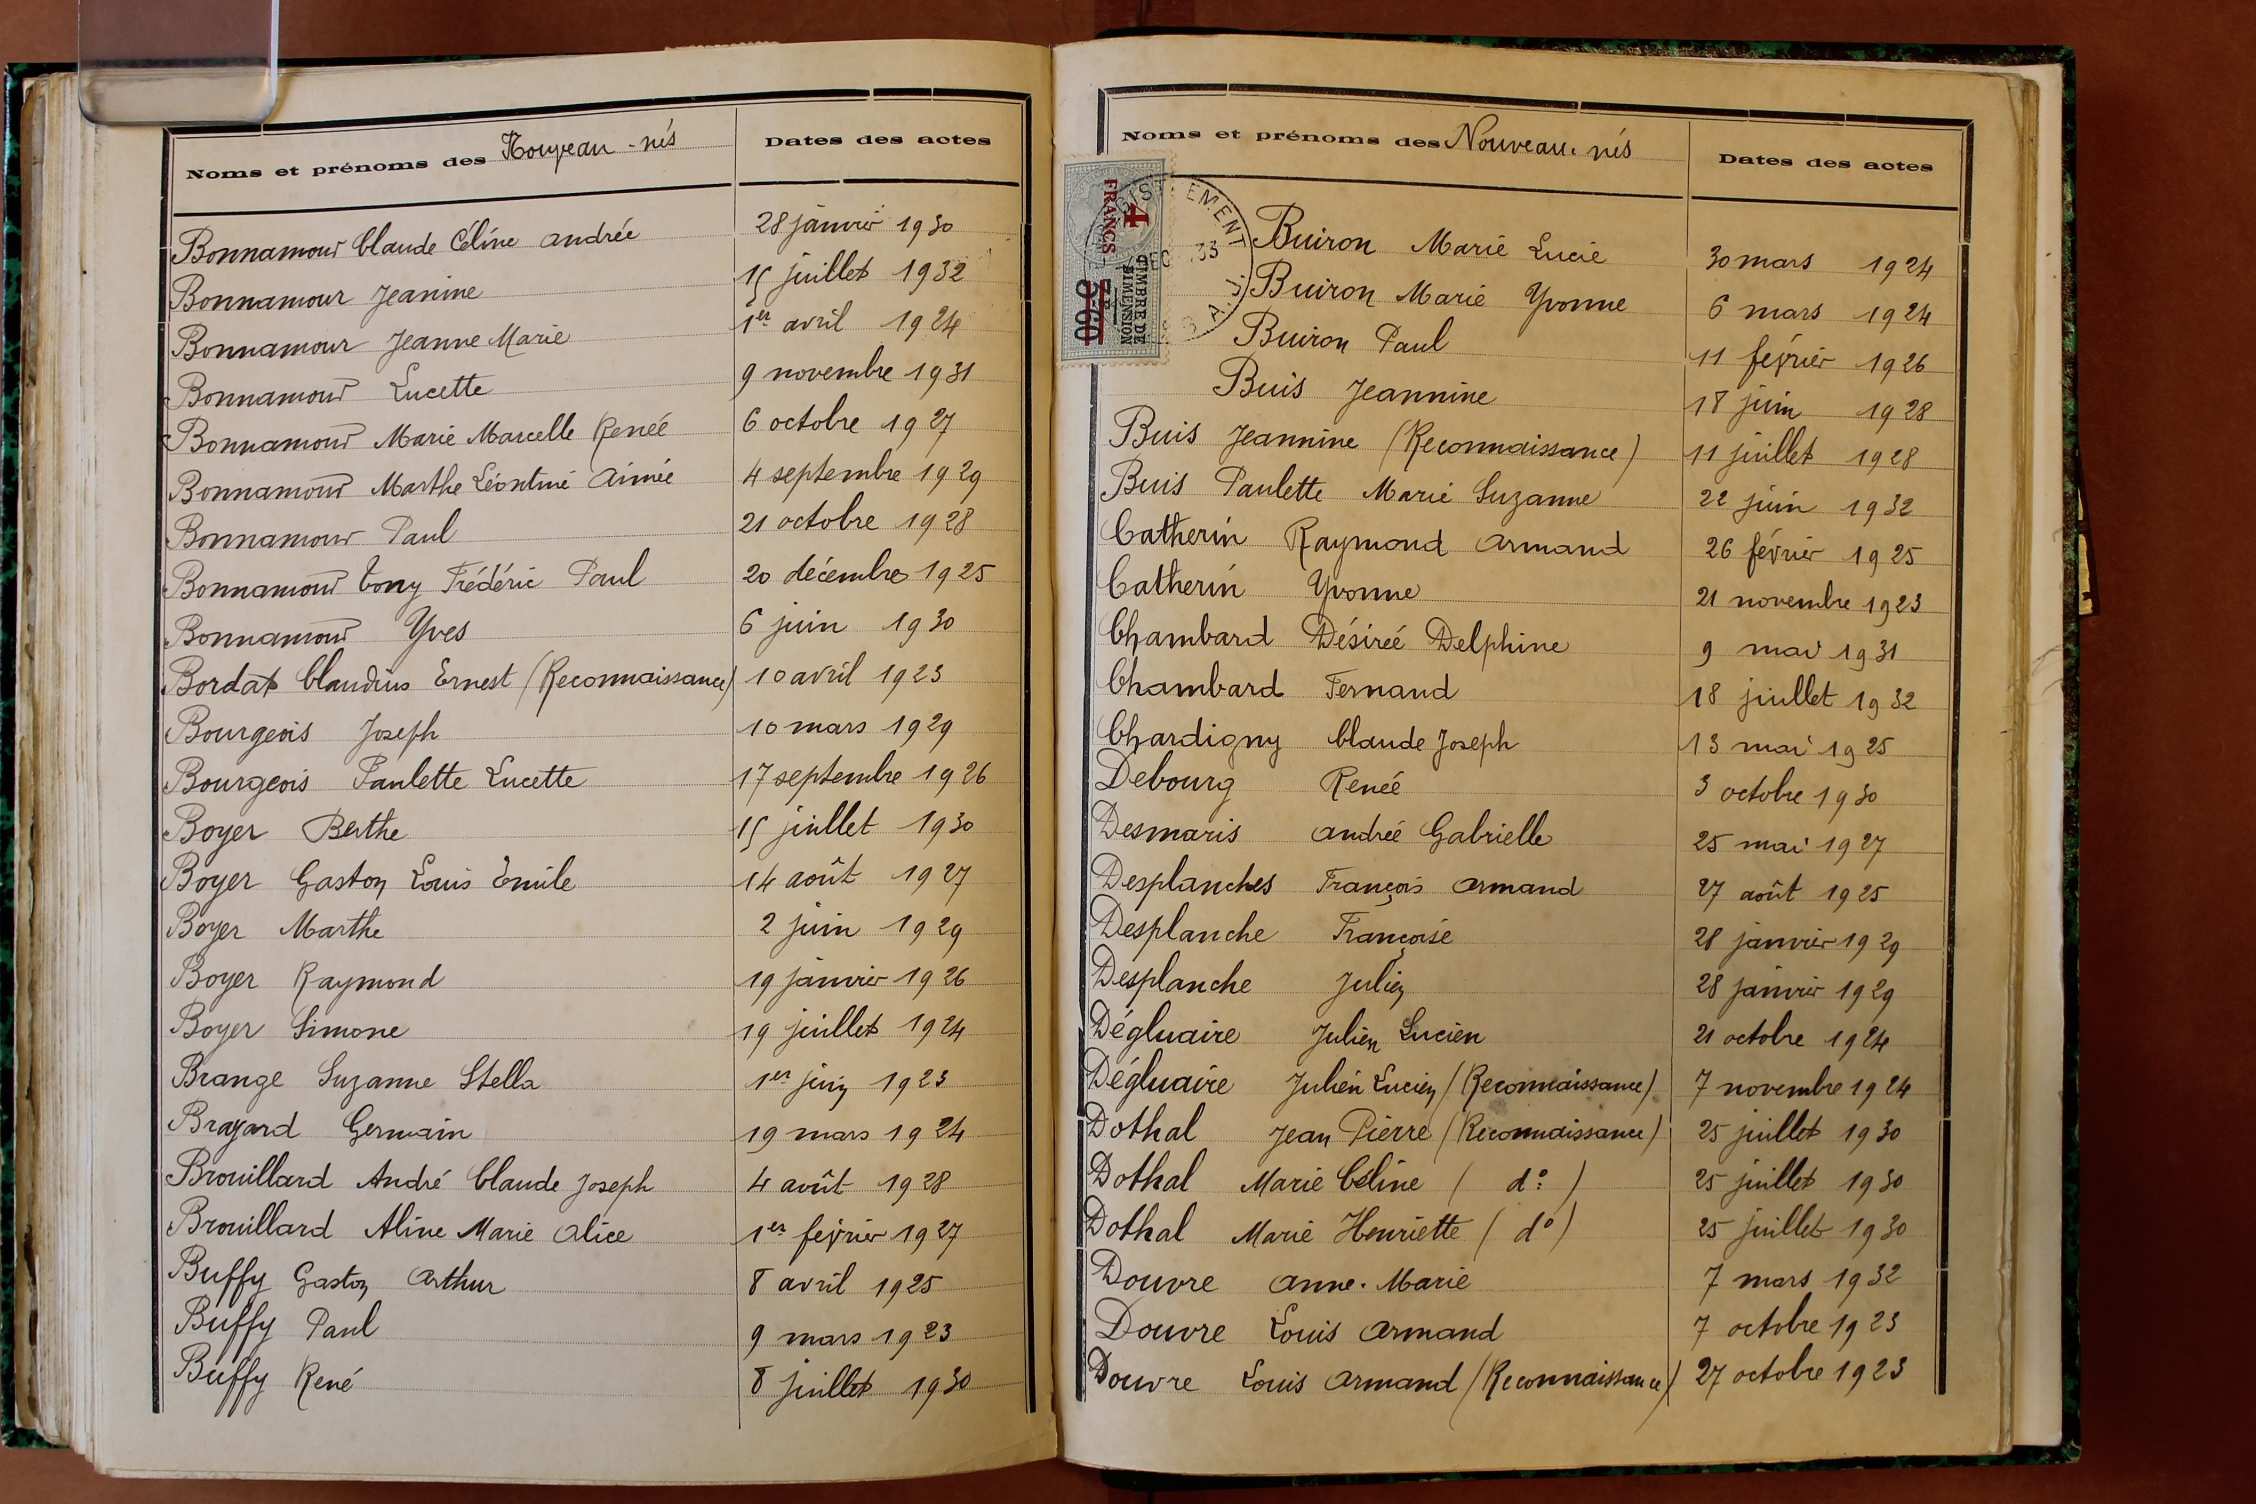 Noms et prénoms des Nouveau-nés Dates des actes
Bonnamour Claude Céline Andrée 28 janvier 1930
Bonnamour Jeanine 15 juillet 1932
Bonnamour Jeanne Marie 1er avril 1924
Bonnamour Lucette 9 novembre 1931
Bonnamour Marie Marcelle Renée 6 octobre 1927
Bonnamour Marthe Léontine Aimée 4 septembre 1929
Bonnamour Paul 21 octobre 1928
Bonnamour Tony Frédéric Paul 20 décembre 1925
Bonnamour Yves 6 juin 1930
Bordat Claudius Ernest (Reconnaissance) 10 avril 1923
Bourgeois Joseph 10 mars 1929
Bourgeois Paulette Lucette 17 septembre 1926
Boyer Berthe 15 juillet 1930
Boyer Gaston Louis Emile 14 août 1927
Boyer Marthe 2 juin 1929
Boyer Raymond 19 janvier 1926
Boyer Simone 19 juillet 1924
Brange Suzanne Stella 1er juin 1923
Brayard Germain 19 mars 1924
Brouillard André Claude Joseph 4 août 1928
Brouillard Aline Marie Alice 1er février 1927
Buffy Gaston Arthur 8 avril 1925
Buffy Paul 9 mars 1923
Buffy René 8 juillet 1930
Noms et prénoms des Nouveau-nés Dates des actes
4 FRANCS
TIMBRE DE
DIMENSION
3F60
Buiron Marie Lucie 30 mars 1924
Buiron Marie Yvonne 6 mars 1924
Buiron Paul 11 février 1926
Buis Jeannine 18 juin 1928
Buis Jeannine (Reconnaissance) 11 juillet 1928
Buis Paulette Marie Suzanne 22 juin 1932
Catherin Raymond Armand 26 février 1925
Catherin Yvonne 21 novembre 1923
Chambard Désirée Delphine 9 mai 1931
Chambard Fernand 18 juillet 1932
Chardigny Claude Joseph 13 mai 1925
Debourg Renée 3 octobre 1930
Desmaris Andrée Gabrielle 25 mai 1927
Desplanches François Armand 27 août 1925
Desplanche Françoise 28 janvier 1929
Desplanche Julien 28 janvier 1929
Dégluaire Julien Lucien 21 octobre 1924
Dégluaire Julien Lucien (Reconnaissance) 7 novembre 1924
Dothal Jean Pierre (Reconnaissance) 25 juillet 1930
Dothal Marie Céline ( d° ) 25 juillet 1930
Dothal Marie Henriette ( d° ) 25 juillet 1930
Douvre Anne-Marie 7 mars 1932
Douvre Louis Armand 7 octobre 1923
Douvre Louis Armand (Reconnaissance) 27 octobre 1923